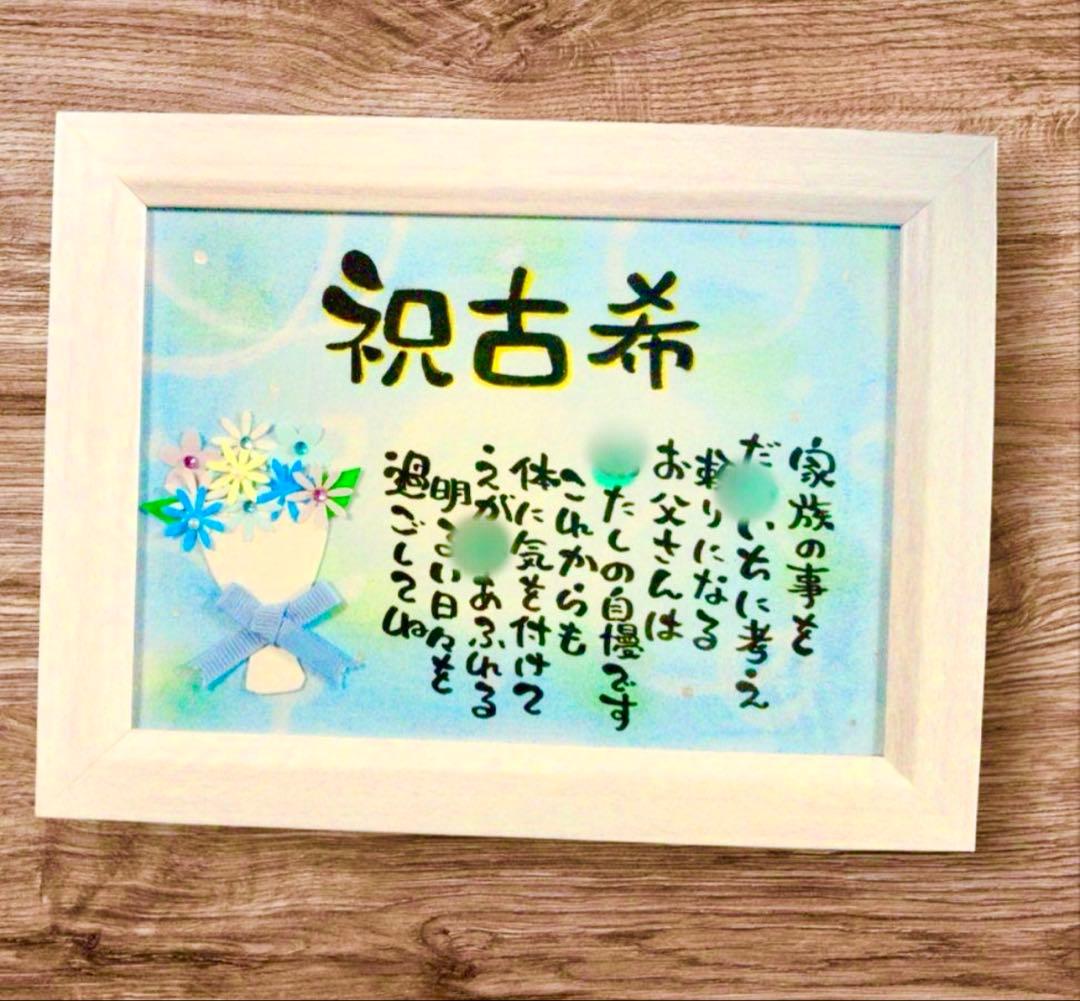 祝古希
家族の事を
だいちに考え
頼りになる
お父さんは
たしの自慢です
これからも
体に気を付けて
えがあふれる
明るい日々を
過ごしてね